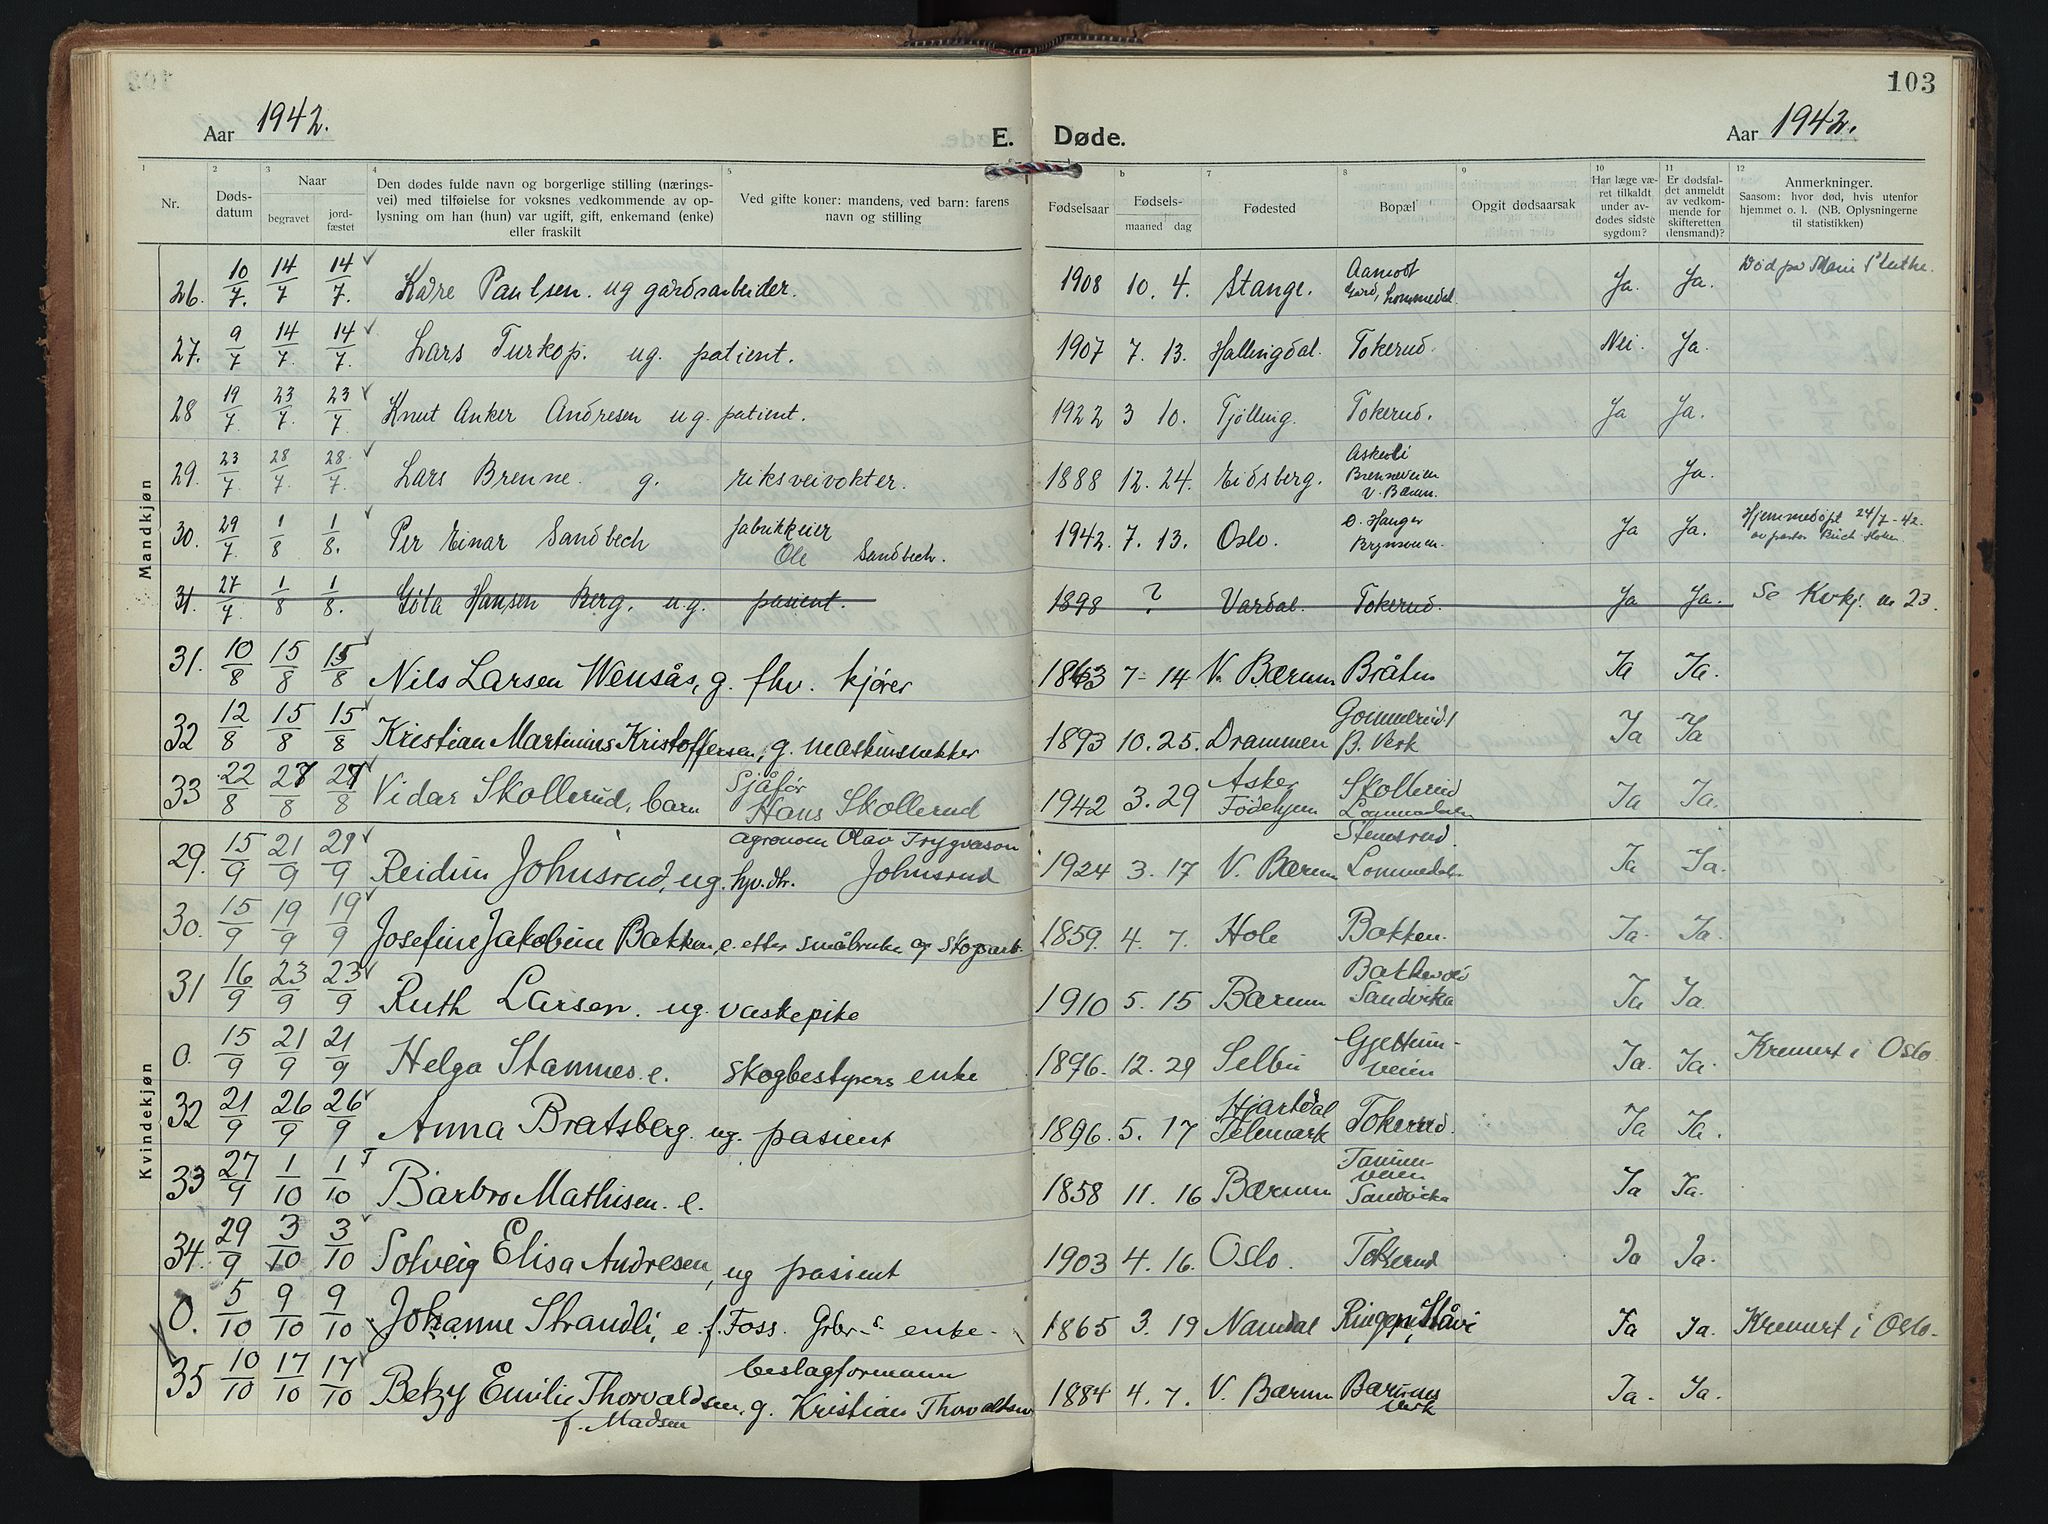 103
Aar 1942.
E. Døde.
Aar 1942.
1 2 3 4 5 6 7 8 9 10 11 12
Nr.
Døds-
datum
Naar
begravet
jord-
fæstet
Den dødes fulde navn og borgerlige stilling (nærings-
vei) med tilføielse for voksnes vedkommende av op-
lysning om han (hun) var ugift, gift, enkemand (enke)
eller fraskilt
Ved gifte koner: mandens, ved barn: farens
navn og stilling
Fødselsaar
b
Fødsels-
maaned dag
Fødested
Bopæl
Opgit dødsaarsak
Har læge væ-
ret tilkaldt
under av-
dødes sidste
sygdom?
Er dødsfal-
det anmeldt
av vedkom-
mende for
skifteretten
(lensmand)?
Anmerkninger.
Saasom: hvor død, hvis utenfor
hjemmet o. l. (NB. Oplysningerne
til statistikken)
Mandkjøn
26. 10/7. 14/7 14/7. Kåre Paulsen. ug gårdsarbeider. 1908 10. 4. Stange. Aamodt Gård, Lommedal. Ja. Ja. Død på
27. 9/7 14/7. 14/7. Lars Turkop. ug. patient. 1907 7. 13. Hallingdal. Tokerud. Nei. Ja.
28 19/7. 23/7. 23/7. Knut Anker Andresen ug. patient. 1922 3 10. Tjølling. Tokerud. Ja Ja.
29. 23/7. 28/7. 28/7. Lars Brenne. g. riksveivokter. 1888 12. 24. Eidsberg. Askeli Brenneveien V. Bærum. Ja.
30. 29/7. 1/8 1/8. Per Einar Sandbech fabrikkeier Ole Sandbech. 1942. 7. 13. Oslo. Ø. Hauger Brynsveien. Ja Ja. Hjemmedöpt 24/7-42. av pastor
31. 27/7 1/8 1/8. Göta Hansen Berg. ug. pasient. 1898 ? Vardal. Tokerud. Ja Ja. Se Kvkj. nr 23.
31. 10/8 15/8 15/8 Nils Larsen Wensås, g. fhv. kjører 1863 7-14 V. Bærum Bråten Ja Ja.
32 12/8 15/8 15/8 Kristian Martinius Kristoffersen, g. maskinsnekker 1893 10. 25. Drammen Gommerud, B. Verk Ja Ja
33 22/8 27/8 27/8 Vidar Skollerud, barn Sjåfør Hans Skollerud 1942 3. 29 Asker Fødehjem Skollerud Lommedalen Ja Ja.
Kvindekjøn
29. 15/9 21/9 21/9 Reidun Johnsrud, ug. hjv. dtr. agronom Olav Trygvason Johnsrud 1924 3. 17 V. Bærum Stensrud. Lommedalen Ja Ja.
30. 15/9 19/9 19/9 Josefine Jakobine Bakken, e. etter småbruker og skogsarb. 1859. 4. 7. Hole Bakken. Ja. Ja.
31 16/9 23/9 23/9 Ruth Larsen. ug. vaskepike 1910 5. 15 Bærum Bakkevold Sandvika Ja Ja.
0. 15/9 21/9 21/9 Helga Stamnes. e. skogbestyrers enke 1896. 12. 29 Selbu Gjettum- veien Ja. Ja. Kremert i Oslo.
32 21/9 26/9 26/9 Anna Bratsberg. ug. pasient 1896. 5. 17 Hjartdal Telemark Tokerud. Ja Ja.
33 27/9 1/10 1/10 Barbro Mathisen. e. 1858 11. 16 Bærum Tanum- veien Sandvika Ja Ja.
34. 29/9 3/10 3/10 Solveig Elisa Andresen, ug pasient 1903 4. 16. Oslo. Tokerud Ja Ja.
0. 5/10 9/10 9/10 Johanne Strandli, e. f. Foss. Grbr-s. enke- 1865 3. 19 Namdal Ringeri, Ja Ja. Kremert i Oslo-
35 10/10 17/10 17/10 Betzy Emilie Thorvaldsen, g. f. Madsen beslagformann Kristian Thorvaldsen 1884 4. 7. V. Bærum Bærums Verk Ja. Ja.